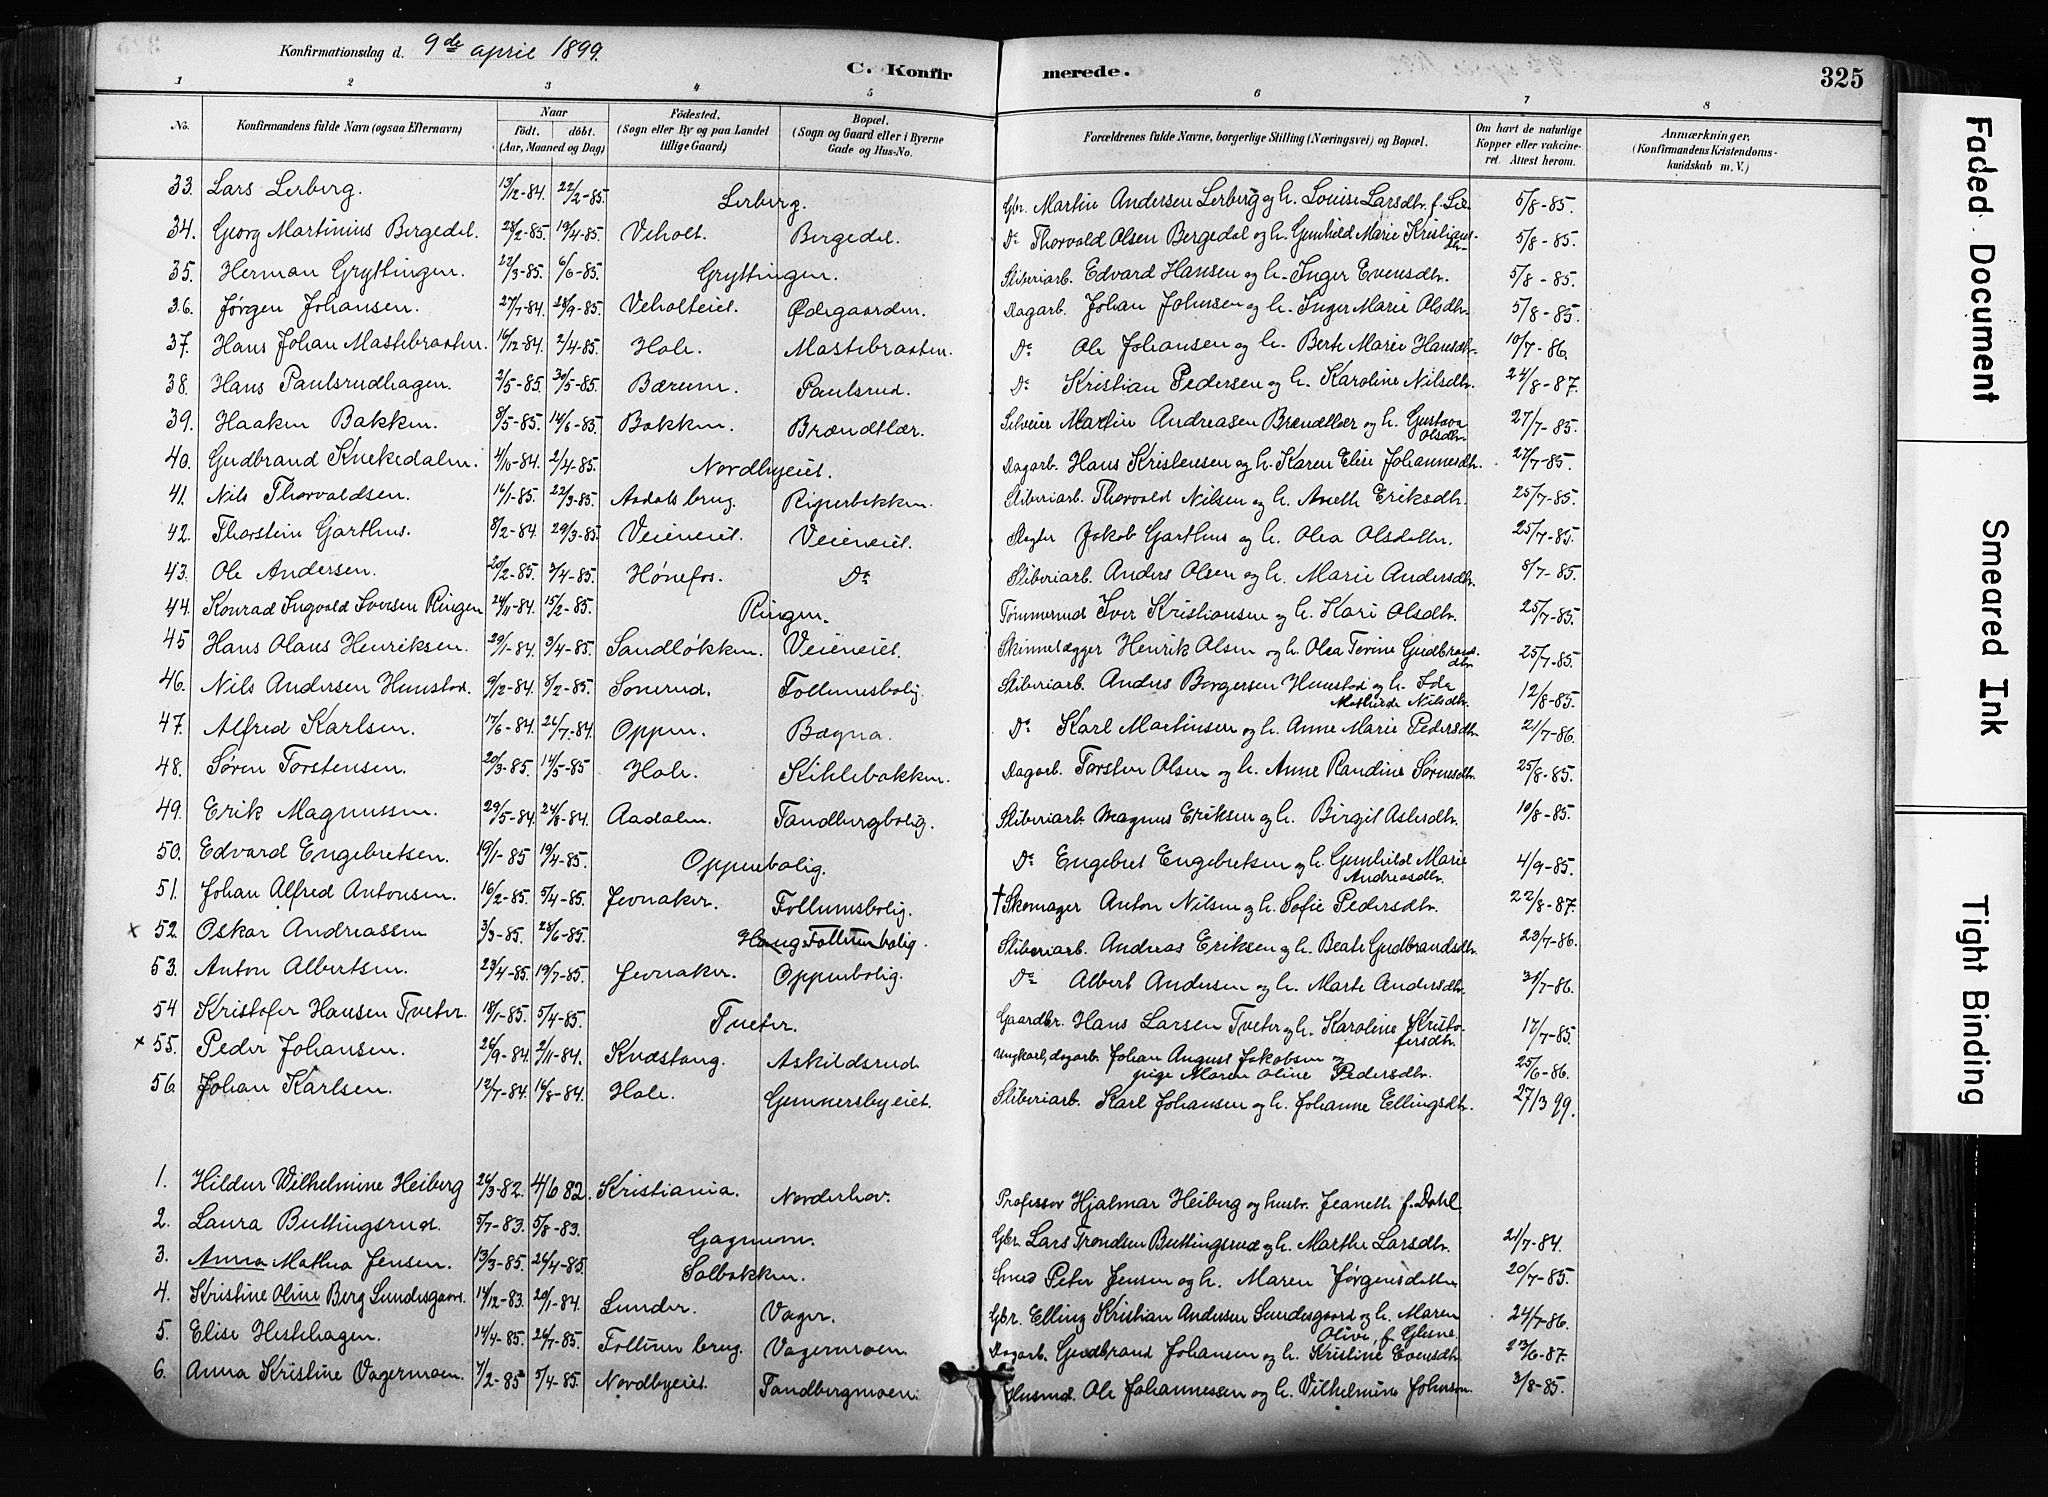 Konfirmationsdag d. 9de april 1899.
C. Konfirmerede.
325
1 2 3 4 5 6 7 8
No. Konfirmandens fulde Navn (ogsaa Efternavn) Naar født. døbt. (Aar, Maaned og Dag) Fødested. (Sogn eller By og paa Landet tillige Gaard) Bopæl. (Sogn og Gaard eller i Byerne Gade og Hus-No. Forældrenes fulde Navne, borgerlige Stilling (Næringsvei) og Bopæl. Om havt de naturlige Kopper eller vaccineret. Attest herom. Anmærkninger. (Konfirmandens Kristendomskundskab m. V.)
33. Lars Lerberg. 13/12-84. 22/2-85. Lerberg. Gbr. Martin Andersen Lerberg og h. Louise Larsdtr. f. Lie 5/8-85.
34. Georg Martinius Bergedal. 28/2-85. 19/4-85. Veholt. Bergedal. Do Thorvald Olsen Bergedal og h. Gunhild Marie Kristiansdtr. 5/8-85.
35. Herman Gryttingen. 22/3-85. 6/6-85. Gryttingen. Sliberiarb. Edvard Hansen og h. Inger Evensdtr. 5/8-85.
36. Jørgen Johansen. 27/7-84. 28/9-85. Veholteiet. Ødegaarden. Dagarb. Johan Johnsen og h. Inger Marie Olsdtr. 5/8-85.
37. Hans Johan Mastebraaten. 16/12-84. 2/4-85. Hole. Mastebraaten. Do Ole Johansen og h. Berte Marie Hansdtr. 10/7-86.
38. Hans Paulsrudhagen. 2/5-85. 30/5-85. Bærum. Paulsrud. Do Kristian Pedersen og h. Karoline Nilsdtr. 24/8-87.
39. Haaken Bakken. 8/5-85. 14/6-85. Bakken. Brændtlær. Selveier Martin Andreasen Brændtlær og h. Gustava Olsdtr. 27/7-85.
40. Gudbrand Knekedalen. 4/10-84. 2/4-85. Nordbyeiet. Dagarb. Hans Kristensen og h. Karen Elise Johannesdtr. 27/7-85.
41. Nils Thorvaldsen. 16/1-85. 22/3-85. Aadals brug. Riperbakken. Sliberiarb. Thorvald Nilsen og h. Aneth Eriksdtr. 25/7-85.
42. Thorstein Garthus. 8/2-84. 29/3-85. Veieneiet. Veieneiet. Slagter Jakob Garthus og h. Olea Olsdatter. 25/7-85.
43. Ole Andersen. 20/2-85. 3/4-85. Hønefos. Do Sliberiarb. Anders Olsen og h. Marie Andersdtr. 8/7-85.
44. Konrad Ingvald Iversen Ringen 24/11-84. 15/2-85. Ringen. Tømmermd. Iver Kristiansen og h. Kari Olsdtr. 25/7-85.
45 Hans Olaus Henriksen. 29/1-84. 3/4-85. Sandløkken. Veieneiet. Skinnelægger Henrik Olsen og h. Olea Tevine Gudbrandsdtr. 25/7-85
46. Nils Andersen Hunstad. 9/12-84. 8/2-85. Sonerud. Follumsbolig. Sliberiarb. Anders Borgersen Hunstad og h. Ida Mathilde Nilsdtr. 12/8-85.
47. Alfred Karlsen. 17/6-84. 26/7-84. Oppen. Bægna. Do Karl Martinsen og h. Anne Marie Pedersdtr. 21/7-86.
48. Søren Torstensen. 20/3-85. 14/5-85 Hole. Kihlebakken. Dagarb. Torsten Olsen og h. Anne Randine Sørensdtr. 25/8-85.
49. Erik Magnussen. 29/5-84. 24/6-84. Aadalen. Tandbergbolig. Sliberiarb. Magnus Eriksen og h. Birgit Aslesdtr. 10/8-85.
50. Edvard Engebretsen. 19/1-85 19/4-85. Oppenbolig. Do Engebret Engebretsen og h. Gunhild Marie Andreasdtr. 4/9-85.
51. Johan Alfred Antonsen. 16/2-85. 5/4-85. Jevnaker. Follumsbolig. † Skomager Anton Nilsen og h. Sofie Pedersdtr. 22/8-87.
× 52. Oskar Andreassen 3/3-85. 28/6-85. Haug Follumbolig. Sliberiarb. Andreas Eriksen og h. Beate Gudbrandsdtr. 23/7-86.
53. Anton Albertsen. 23/4-85. 19/7-85. Jevnaker. Oppenbolig. Do Albert Andersen og h. Marte Andersdtr. 31/7-86.
54 Kristofer Hansen Tveter. 18/1-85. 5/4-85. Tveter. Gaardbr. Hans Larsen Tveter og h. Karoline Kristofersdtr. 17/7-85.
× 55. Peder Johansen. 26/9-84. 2/11-84. Knæstang. Askildsrud Ungkarl, dagarb. Johan August Jakobsen og pige Maren Oline Pedersdtr. 25/6-86.
56. Johan Karlsen. 12/7-84. 16/8-84. Hole. Gunnersbyeiet. Sliberiarb. Karl Johansen og h. Johanne Ellingsdtr. 27/3 99.
1. Hildur Vilhelmine Heiberg 26/3-82. 4/6 82. Kristiania. Norderhov. Professor Hjalmar Heiberg og hustr. Jeanette f. Dahl.
2. Laura Buttingsrud. 5/7-83. 5/8-83. Gagnum. Gbr. Lars Trondsen Buttingsrud og h. Marthe Larsdtr. 21/7-84.
3. Anna Mathea Jensen. 13/3-85. 26/4-85. Solbakken. Smed Peter Jensen og h. Maren Jørgensdatter 20/7-85.
4. Kristine Oline Berg Lundesgaard. 14/12-83. 20/1-84. Lunder. Vager. Gbr. Elling Kristian Andersen Lundesgaard og h. Maren Olive, f. Glesne. 24/7-86.
5. Elise Hestehagen. 14/4-85. 26/7-85. Follum brug. Vagermoen Dagarb. Gudbrand Johansen og h. Kristine Evensdtr. 23/6-87.
6. Anna Kristine Vagermoen. 7/2-85 5/4-85. Nordbyeiet. Tandbergmoen. Husmd. Ole Johannessen og h. Vilhelmine Johnson. 3/8-85.
Faded Document
Smeared Ink
Tight Binding